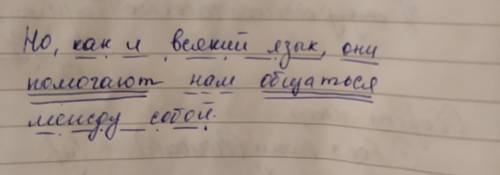 Но, как и всякий язык, они
помогают нам общаться
между собой.